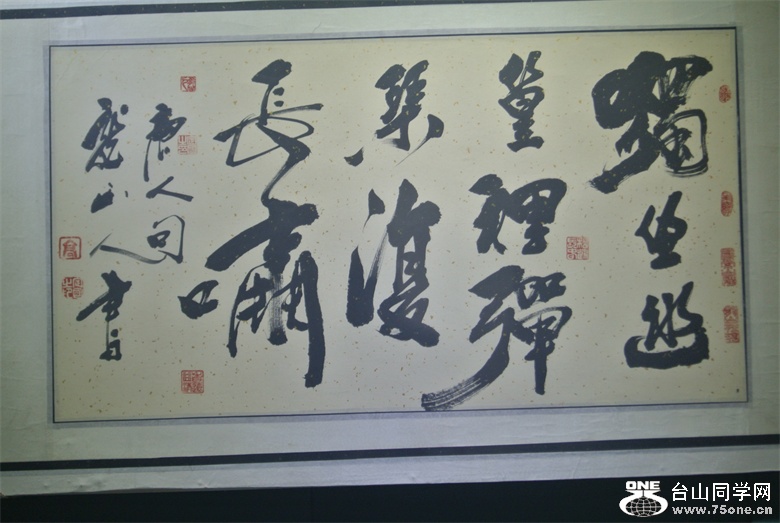 獨坐幽
篁裡彈
琴復
長嘯
唐人句
山人書
ONE
台山同学网
www.75one.cn